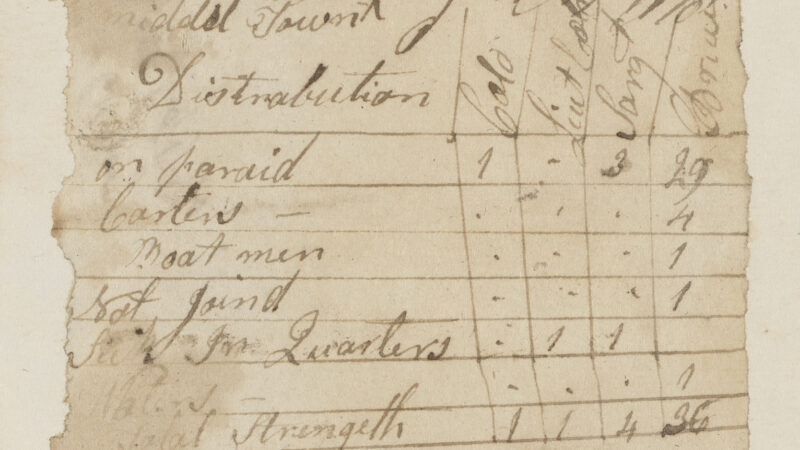 middd Townt
Distrabution Colo Lieut Colo Sargt
on paraid 1 - 3 29
Carters - . . . 4
Boat men . . . 1
Not Joind . . . 1
Sick In Quarters . 1 1
. . . 1
Total Strength 1 1 4 36